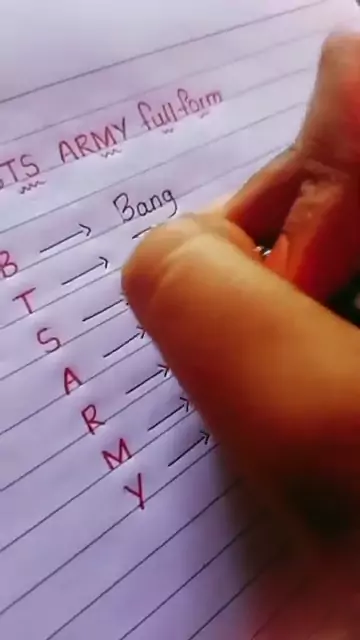 BTS ARMY full-form
B → Bang
T →
S →
A →
R →
M →
Y →